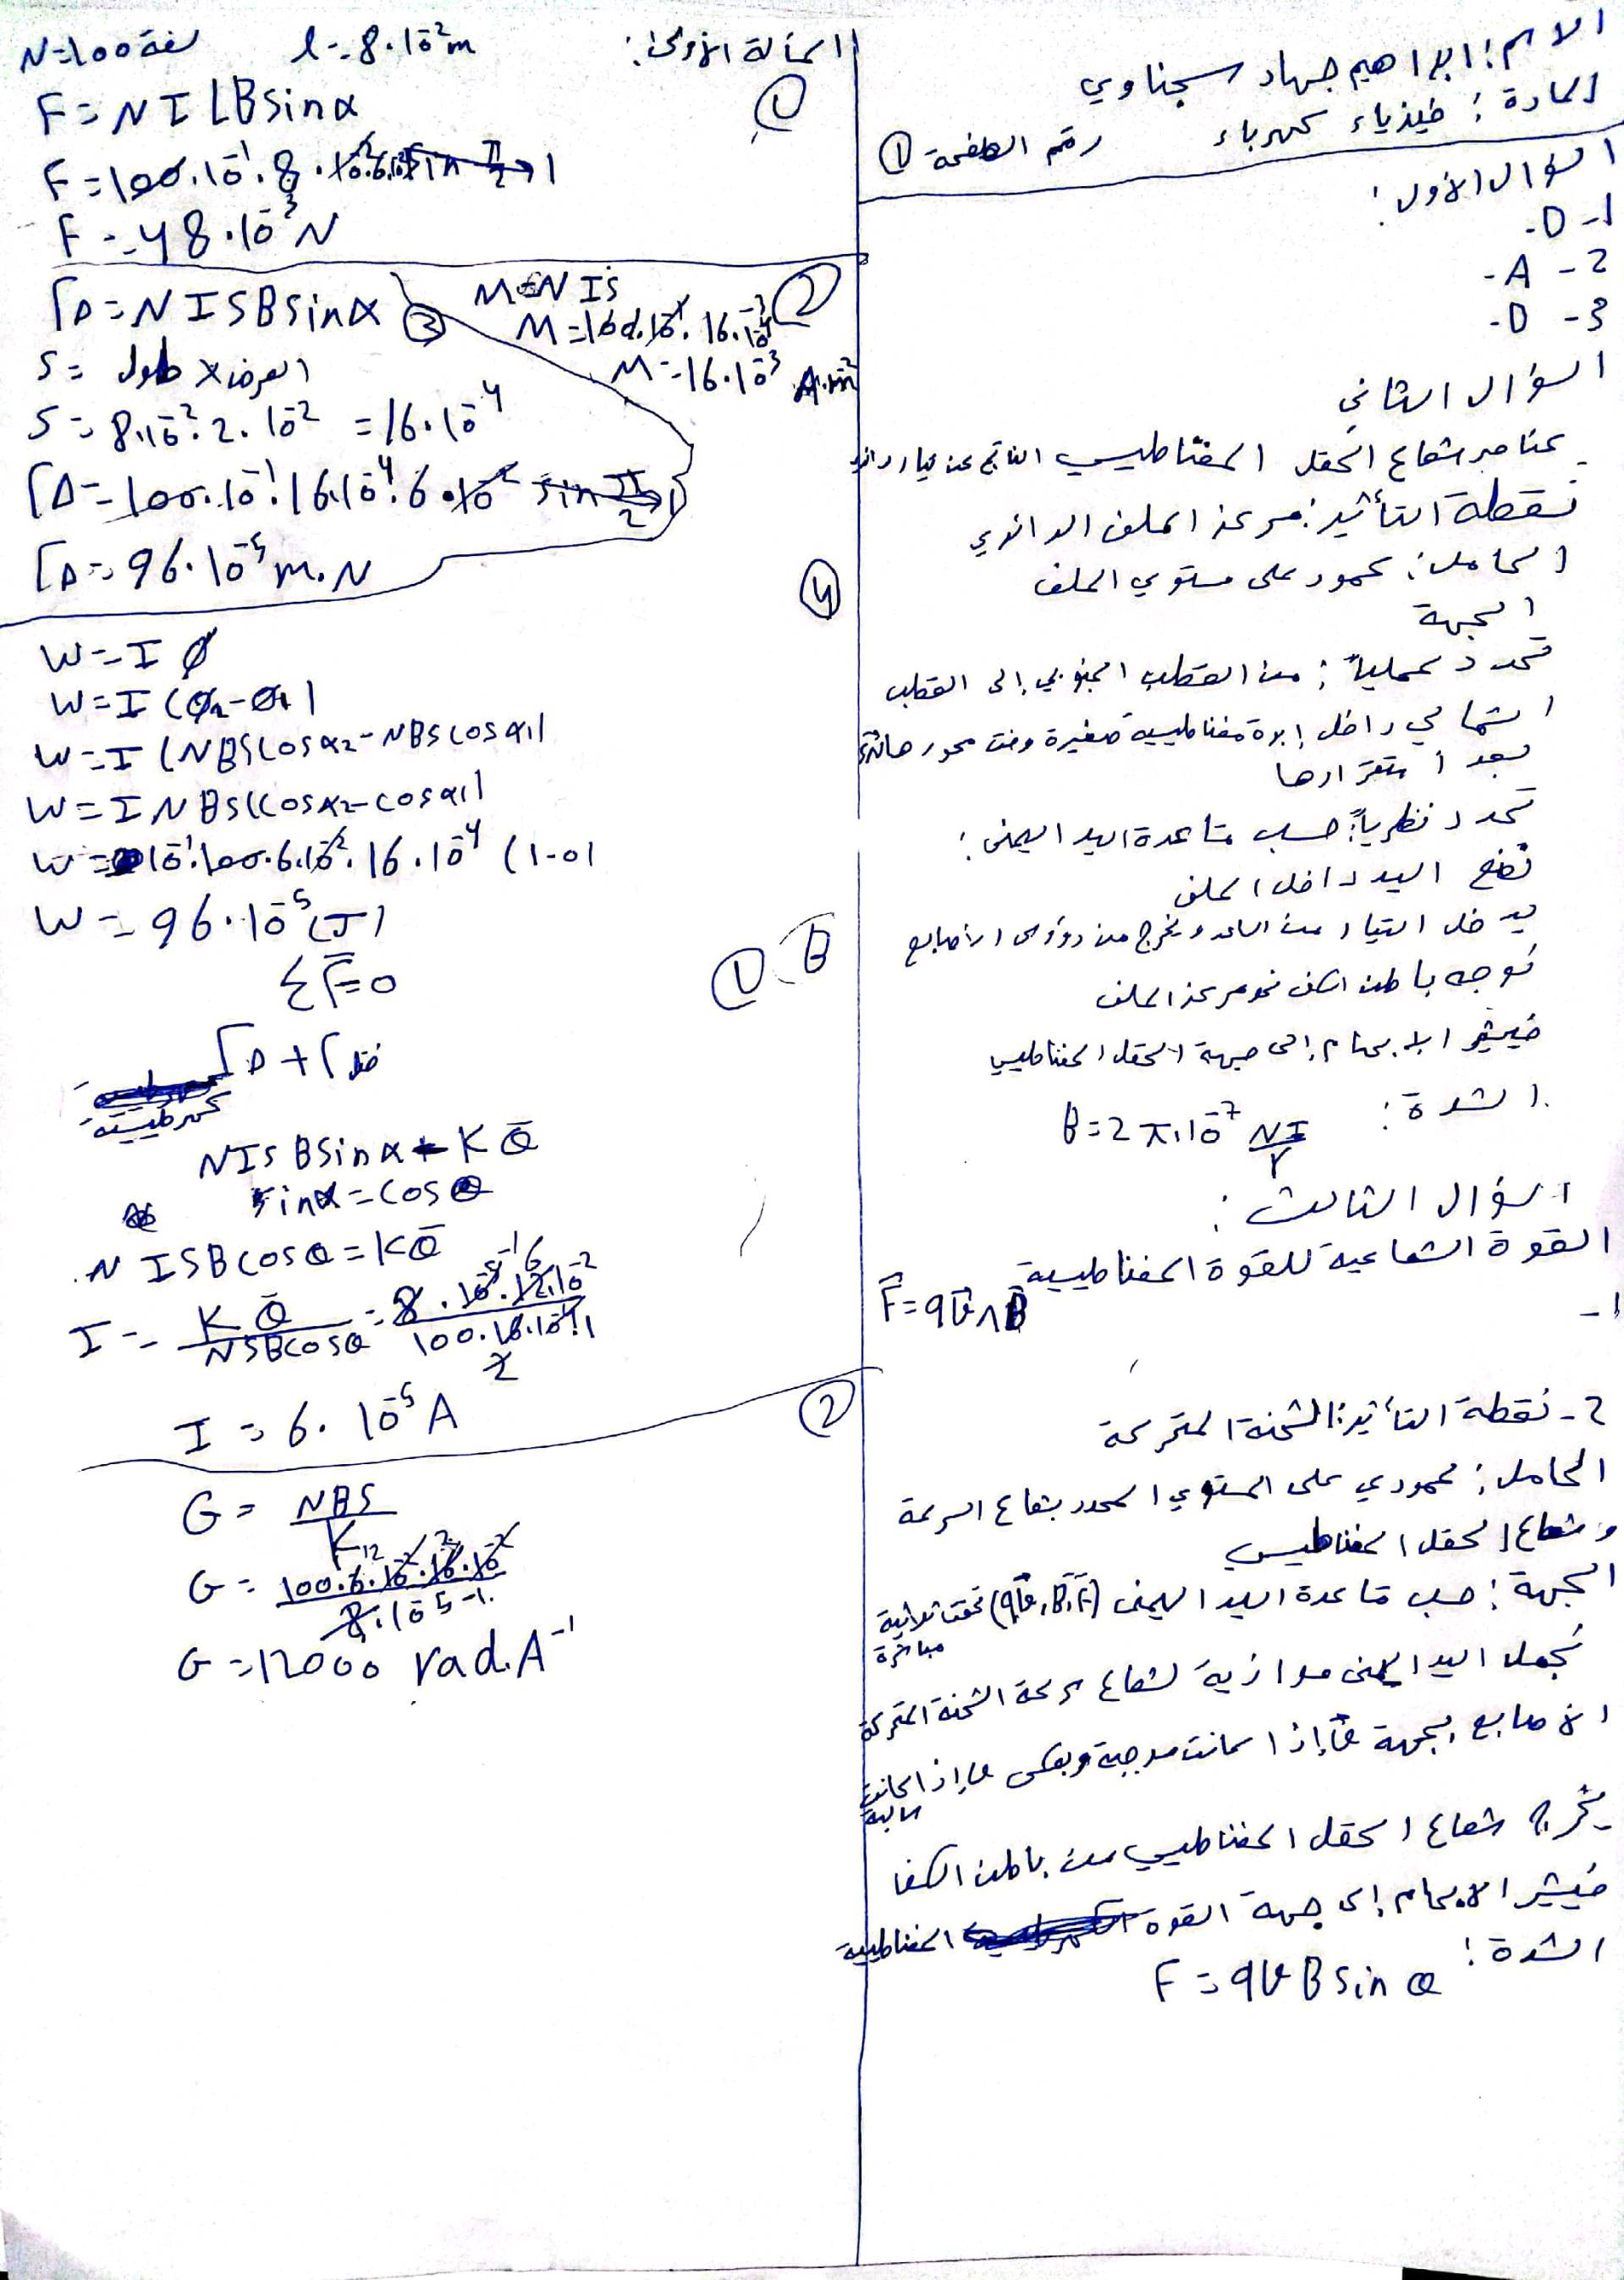 الاسم: ابراهيم جهاد سجناوي
المادة: فيزياء كهرباء رقم الصفحة ①
السؤال الأول:
1- D-
2- A-
3- D-
السؤال الثاني
عناصر شعاع الحقل المغناطيسي الناتج عن تيار دائري
نقطة التأثير: مركز الملف الدائري
الحامل: عمود على مستوي الملف
الجهة
تحدد عملياً: من القطب الجنوبي إلى القطب
الشمالي داخل إبرة مغناطيسية صغيرة
بعد استقرارها
تحدد نظرياً: حسب قاعدة اليد اليمنى:
نضع اليد داخل الملف
يدخل التيار من الساعد ويخرج من رؤوس الأصابع
نوجه باطن الكف نحو مركز الملف
فيشير الابهام إلى جهة الحقل المغناطيسي
الشدة: B=2π.10⁻⁷ NI/r
السؤال الثالث:
القوة الشعاعية للقوة المغناطيسية
1- F=qv∧B
2- نقطة التأثير: الشحنة المتحركة
الحامل: عمودي على المستوي المحدد بشعاع السرعة
وشعاع الحقل المغناطيسي
الجهة: حسب قاعدة اليد اليمنى (qv,B,F) تحقق ثلاثية
مباشرة
نجعل اليد اليمنى موازية لشعاع سرعة الشحنة المتحركة
الأصابع بجهة v إذا كانت موجبة وبعكس v إذا كانت
سالبة
يخرج شعاع الحقل المغناطيسي من باطن الكف
فيشير الابهام إلى جهة القوة المغناطيسية
الشدة: F=qvBsinθ
المسألة الأولى: l=8.10⁻²m N=100 لفة
①
F=NILBsinα
F=100.10⁻¹.8.10⁻².6.10⁻² sin π/2→1
F=48.10⁻³N
② M=NIS
M=100.10⁻¹.16.10⁻⁴
M=16.10⁻³ A.m²
③ ΓΔ=NISBsinα
S= العرض×طول
S=8.10⁻².2.10⁻²=16.10⁻⁴
ΓΔ=100.10⁻¹.16.10⁻⁴.6.10⁻² sin π/2→1
ΓΔ=96.10⁻⁵m.N
④
W=Iφ
W=I(φ2-φ1)
W=I(NBScosα2-NBScosα1)
W=INBS(cosα2-cosα1)
W=10⁻¹.100.6.10⁻².16.10⁻⁴(1-0)
W=96.10⁻⁵(J)
B-①
ΣΓ=0
ΓΔ+Γ فتل
كهرطيسية
NISBsinα+Kθ
sinα=cosθ
NISBcosθ=Kθ
I=Kθ/NSBcosθ=8.10⁻⁵.12.10⁻²/100.16.10⁻⁴.1
I=6.10⁻⁵A
②
G=NBS/K
G=100.6.10⁻².16.10⁻²/8.10⁻⁵
G=12000 rad.A⁻¹